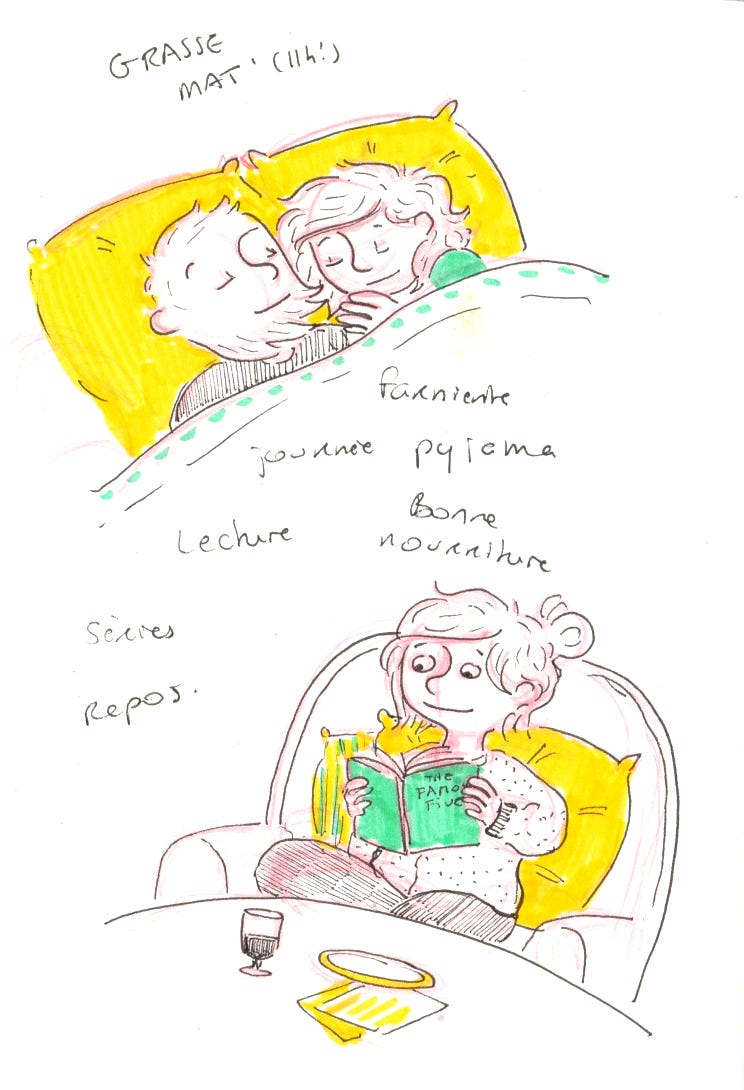 GRASSE
MAT' (11h!)
farniente
journée pyjama
Lecture
Bonne
nourriture
Séries
Repos.
THE
FAMO
FIVE